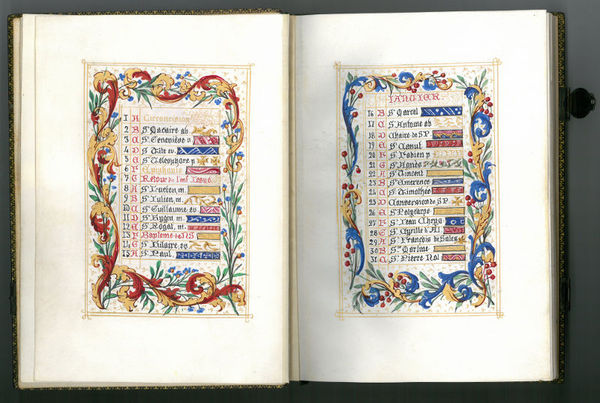 1 A Circoncision
2 B S. Macaire ab
3 C Ste Geneviève v
4 D S. Tite ev.
5 E S. Télesphore p
6 F Epiphanie
7 G
8 A S. Lucien m.
9 B S. Julien m.
10 C S. Guillaume ev.
11 D S. Hygin m.
12 E
13 F Baptème de N.S
14 G S. Hilaire ev
15 A S. Paul
JANVIER.
16 B S. Marcel
17 C S. Antoine ab
18 D Chaire de S.P.
19 E S. Canut
20 F S. Fabien p
21 G Ste Agnès
22 A S. Vincent
23 B
24 C S. Timothée
25 D Conversion de S.P.
26 E S. Polycarpe
27 F S. Jean Chrys
28 G S. Cyrille d'Al
29 A S. François de Sales
30 B Ste Martine
31 C S. Pierre Nol